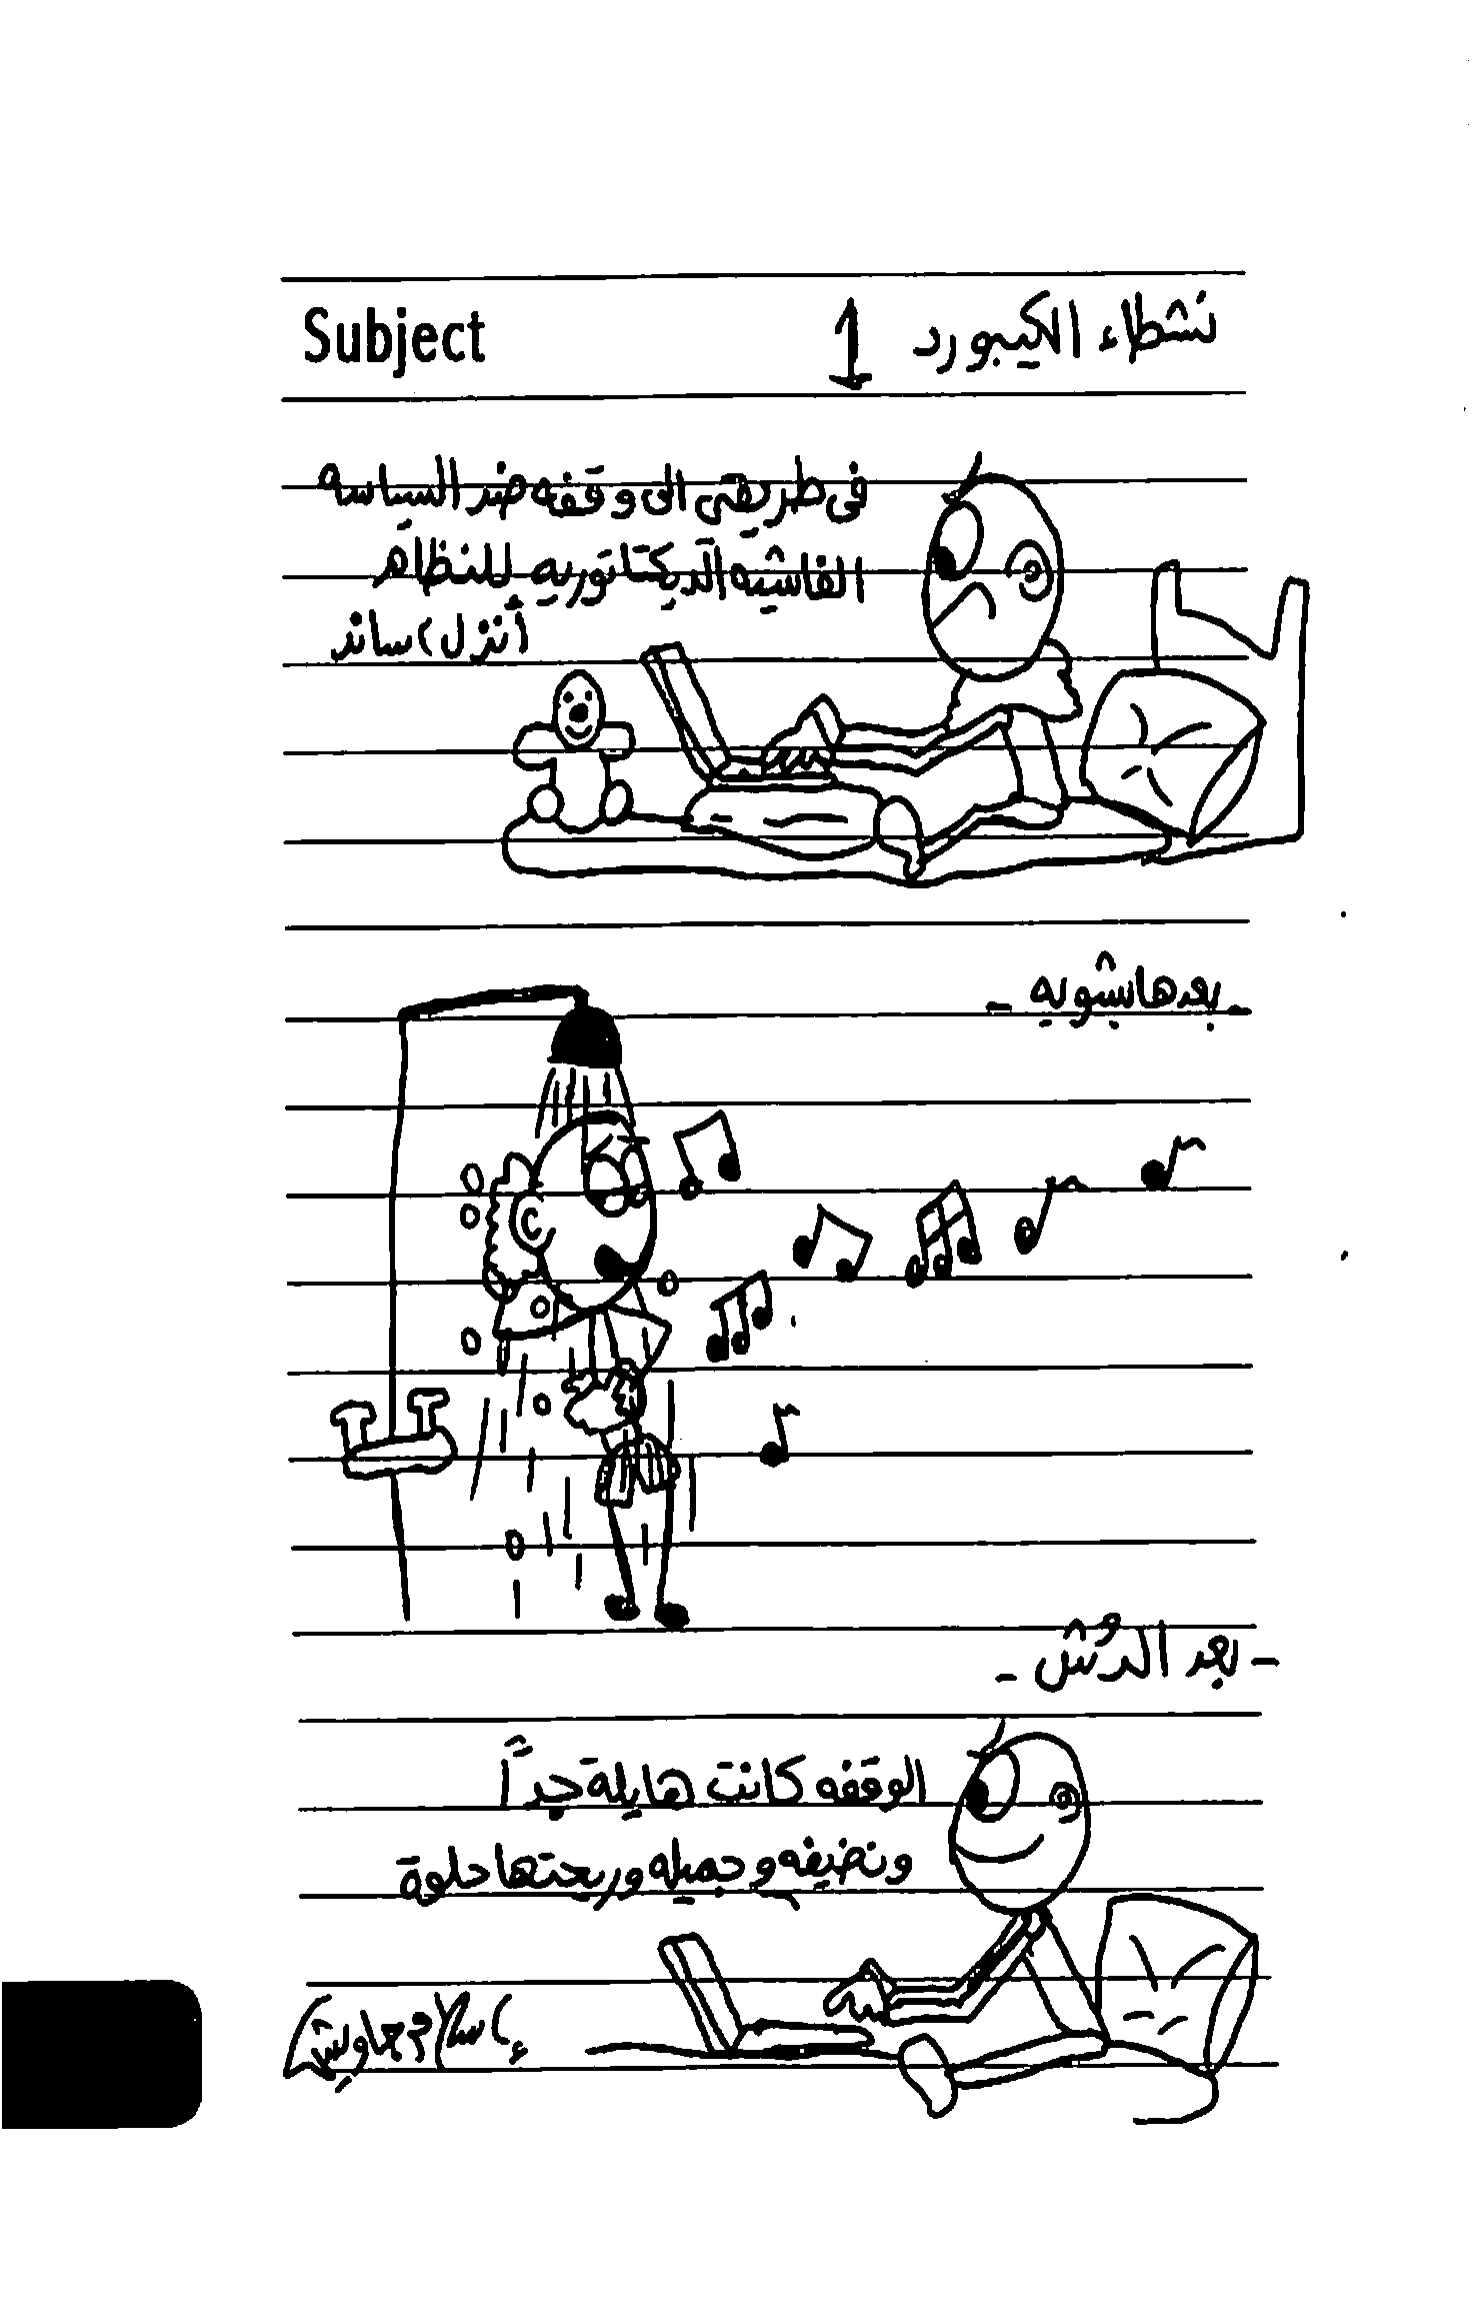 Subject
نشطاء الكيبورد 1
فى طريقى الى وقفه ضد السياسه
الفاشيه الديكتاتوريه للنظام
أنزل) ساند)
- بعدها بشويه -
- بعد الدُش -
الوقفه كانت هايلة جداً
ونضيفه وجميله وريحتها حلوة
إسلام جاويش